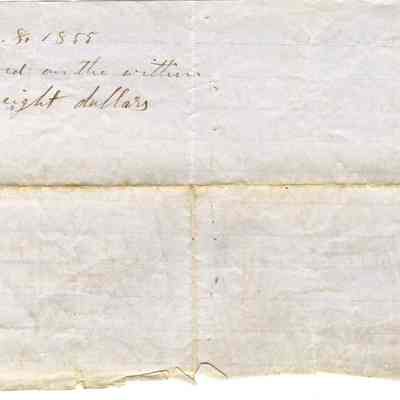 8. 1855
ed on the within
eight dollars